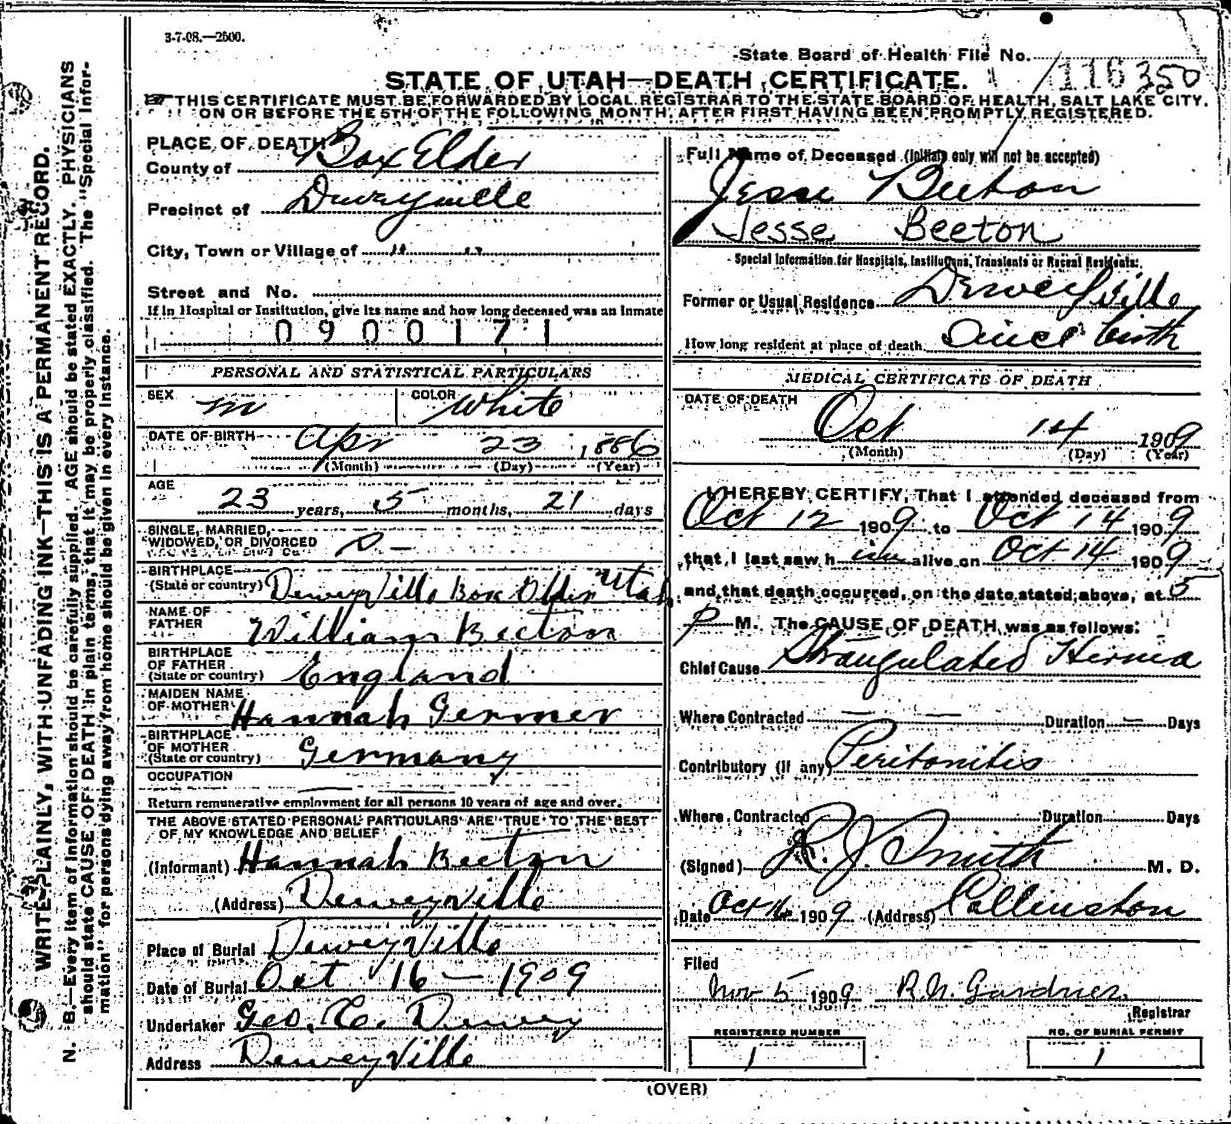 3-7-08.—2500.
State Board of Health File No. 116 350
STATE OF UTAH—DEATH CERTIFICATE.
THIS CERTIFICATE MUST BE FORWARDED BY LOCAL REGISTRAR TO THE STATE BOARD OF HEALTH, SALT LAKE CITY,
ON OR BEFORE THE 5TH OF THE FOLLOWING MONTH, AFTER FIRST HAVING BEEN PROMPTLY REGISTERED.
WRITE PLAINLY, WITH UNFADING INK—THIS IS A PERMANENT RECORD.
N. B.—Every item of information should be carefully supplied. AGE should be stated EXACTLY. PHYSICIANS
should state CAUSE OF DEATH in plain terms, that it may be properly classified. The "Special Infor-
mation" for persons dying away from home should be given in every instance.
PLACE OF DEATH
County of Box Elder
Precinct of Deweyville
City, Town or Village of " "
Street and No.
If in Hospital or Institution, give its name and how long deceased was an inmate
0900171
PERSONAL AND STATISTICAL PARTICULARS
SEX m COLOR White
DATE OF BIRTH Apr 23 1886
(Month) (Day) (Year)
AGE
23 years, 5 months, 21 days
SINGLE, MARRIED,
WIDOWED, OR DIVORCED
BIRTHPLACE
(State or country) Deweyville Box Elder Utah
NAME OF
FATHER William Beeton
BIRTHPLACE
OF FATHER
(State or country) England
MAIDEN NAME
OF MOTHER Hannah Germer
BIRTHPLACE
OF MOTHER
(State or country) Germany
OCCUPATION
Return remunerative employment for all persons 10 years of age and over.
THE ABOVE STATED PERSONAL PARTICULARS ARE TRUE TO THE BEST
OF MY KNOWLEDGE AND BELIEF
(Informant) Hannah Beeton
(Address) Deweyville
Place of Burial Deweyville
Date of Burial Oct 16 — 1909
Undertaker Geo. C. Dewey
Address Deweyville
Full Name of Deceased (Initials only will not be accepted)
Jesse Beeton
Jesse Beeton
Special Information for Hospitals, Institutions, Transients or Recent Residents:
Former or Usual Residence Deweyville
How long resident at place of death Since birth
MEDICAL CERTIFICATE OF DEATH
DATE OF DEATH
Oct 14 1909
(Month) (Day) (Year)
I HEREBY CERTIFY, That I attended deceased from
Oct 12 1909 to Oct 14 1909
that I last saw him alive on Oct 14 1909
and that death occurred, on the date stated above, at 5
P M. The CAUSE OF DEATH was as follows:
Chief Cause Strangulated Hernia
Where Contracted — — Duration — Days
Contributory (if any) Peritonitis
Where Contracted Duration Days
(Signed) R. J. Smith M. D.
Date Oct 16 1909 (Address) Collinston
Filed
Nov 5 1909 R. N. Gardner
Registrar
REGISTERED NUMBER NO. OF BURIAL PERMIT
1 1
(OVER)